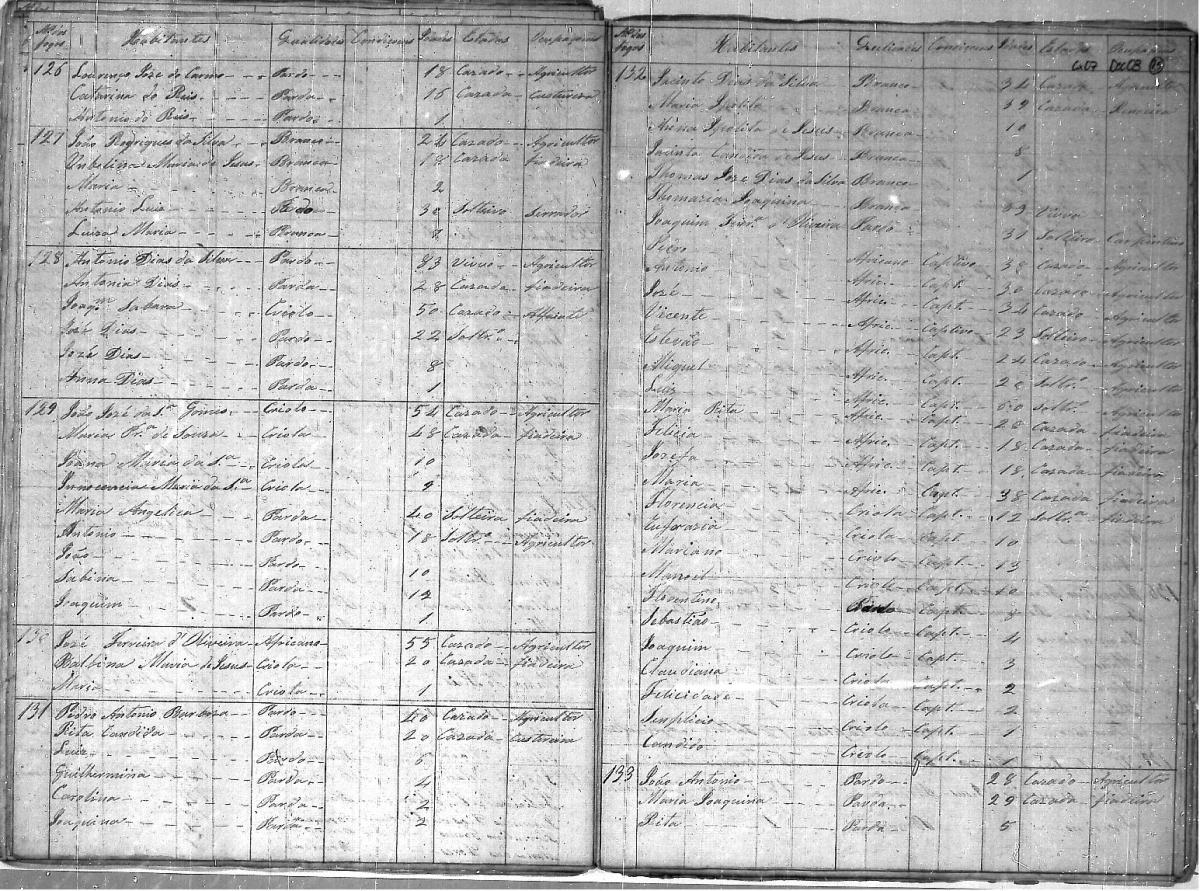 Nº dos fogos Habitantes Qualidades Condiçoens Idades Estados Ocupaçoens
126 Lourenço Joze do Carmo Pardo 18 Cazado Agricultor
Catarina do Reis Parda 16 Cazada Custureira
Antonio do Reis Pardo 1
127 João Rodrigues da Silva Branco 24 Cazado Agricultor
Maria de Jesus Branca 18 Cazada fiadeira
Maria Branca 2
Antonio Luis 30 Solteiro Serrador
Luiza Maria Branca
128 Antonio Dias da Silva Pardo 83 Viuvo Agricultor
Antonia Dias Parda 28 Cazada fiadeira
Joaqm Sabara Criolo 50 Cazado Alfaiate
José Dias Pardo 22 Soltro
José Dias Pardo 8
Anna Dias Parda 1
129 João José da Sa Gomes Criolo 54 Cazado Agricultor
Maria Pra de Souza Criola 48 Cazada fiadeira
Joana Maria da Sa Criola 10
Innocencia Maria da Sa Criola 9
Maria Angelica Parda 40 Solteira fiadeira
Antonio Pardo 18 Soltro Agricultor
João Pardo 10
Sabina Parda 12
Joaquim Pardo 1
130 José Ferreira d'Oliveira Africano 55 Cazado Agricultor
Balbina Maria de Jesus Criola 20 Cazada fiadeira
Maria Criola 1
131 Pedro Antonio Barboza Pardo 40 Cazado Agricultor
Rita Candida Parda 20 Cazada Custureira
Luis Pardo 6
Guilhermina Parda 4
Carolina Parda 2
Joaquina Parda 2
Nº dos fogos Habitantes Qualidades Condiçoens Idades Estados Ocupaçoens
Cx07 Doc03 13
132 Jacinto Dias da Silva Branco 34 Cazado Agricultor
Maria Branca 32 Cazada
Ipolita de Jesus Branca 10
Jacinta Candida de Jesus Branca 8
Thomas Joze Dias da Silva Branco 1
Joaquina Branca 53 Viuva
Joaquim d'Oliveira Pardo 37 Solteiro Carpinteiro
Africano Captivo 38 Cazado Agricultor
Antonio Afric. Capt. 30 Cazado Agricultor
José Afric. Capt. 34 Cazado Agricultor
Vicente Afric. Captivo 23 Solteiro Agricultor
Estevão Afric. Capt. 24 Cazado Agricultor
Miguel Afric. Capt. 20 Soltro Agricultor
Luiz Afric. Capt. 60 Soltro Agricultor
Maria Rita Afric. Capt. 28 Cazada fiadeira
Felicia Afric. Capt. 18 Cazada fiadeira
Jozefa Afric. Capt. 18 Cazada fiadeira
Maria Afric. Capt. 38 Cazada fiadeira
Florencia Criola Capt. 12 Soltra fiadeira
Eufrazia Criola Capt. 10
Mariano Criolo Capt. 13
Manoel Criolo Capt. 10
Florentino Pardo Capt. 8
Sebastião Criolo Capt. 4
Joaquim Criolo Capt. 3
Claudiana Criola Capt. 2
Felicidade Criola Capt. 2
Simplicio Criolo Capt. 1
Candido Criolo Capt. 1
133 João Antonio Pardo 28 Cazado Agricultor
Maria Joaquina Parda 29 Cazada fiadeira
Rita Parda 5